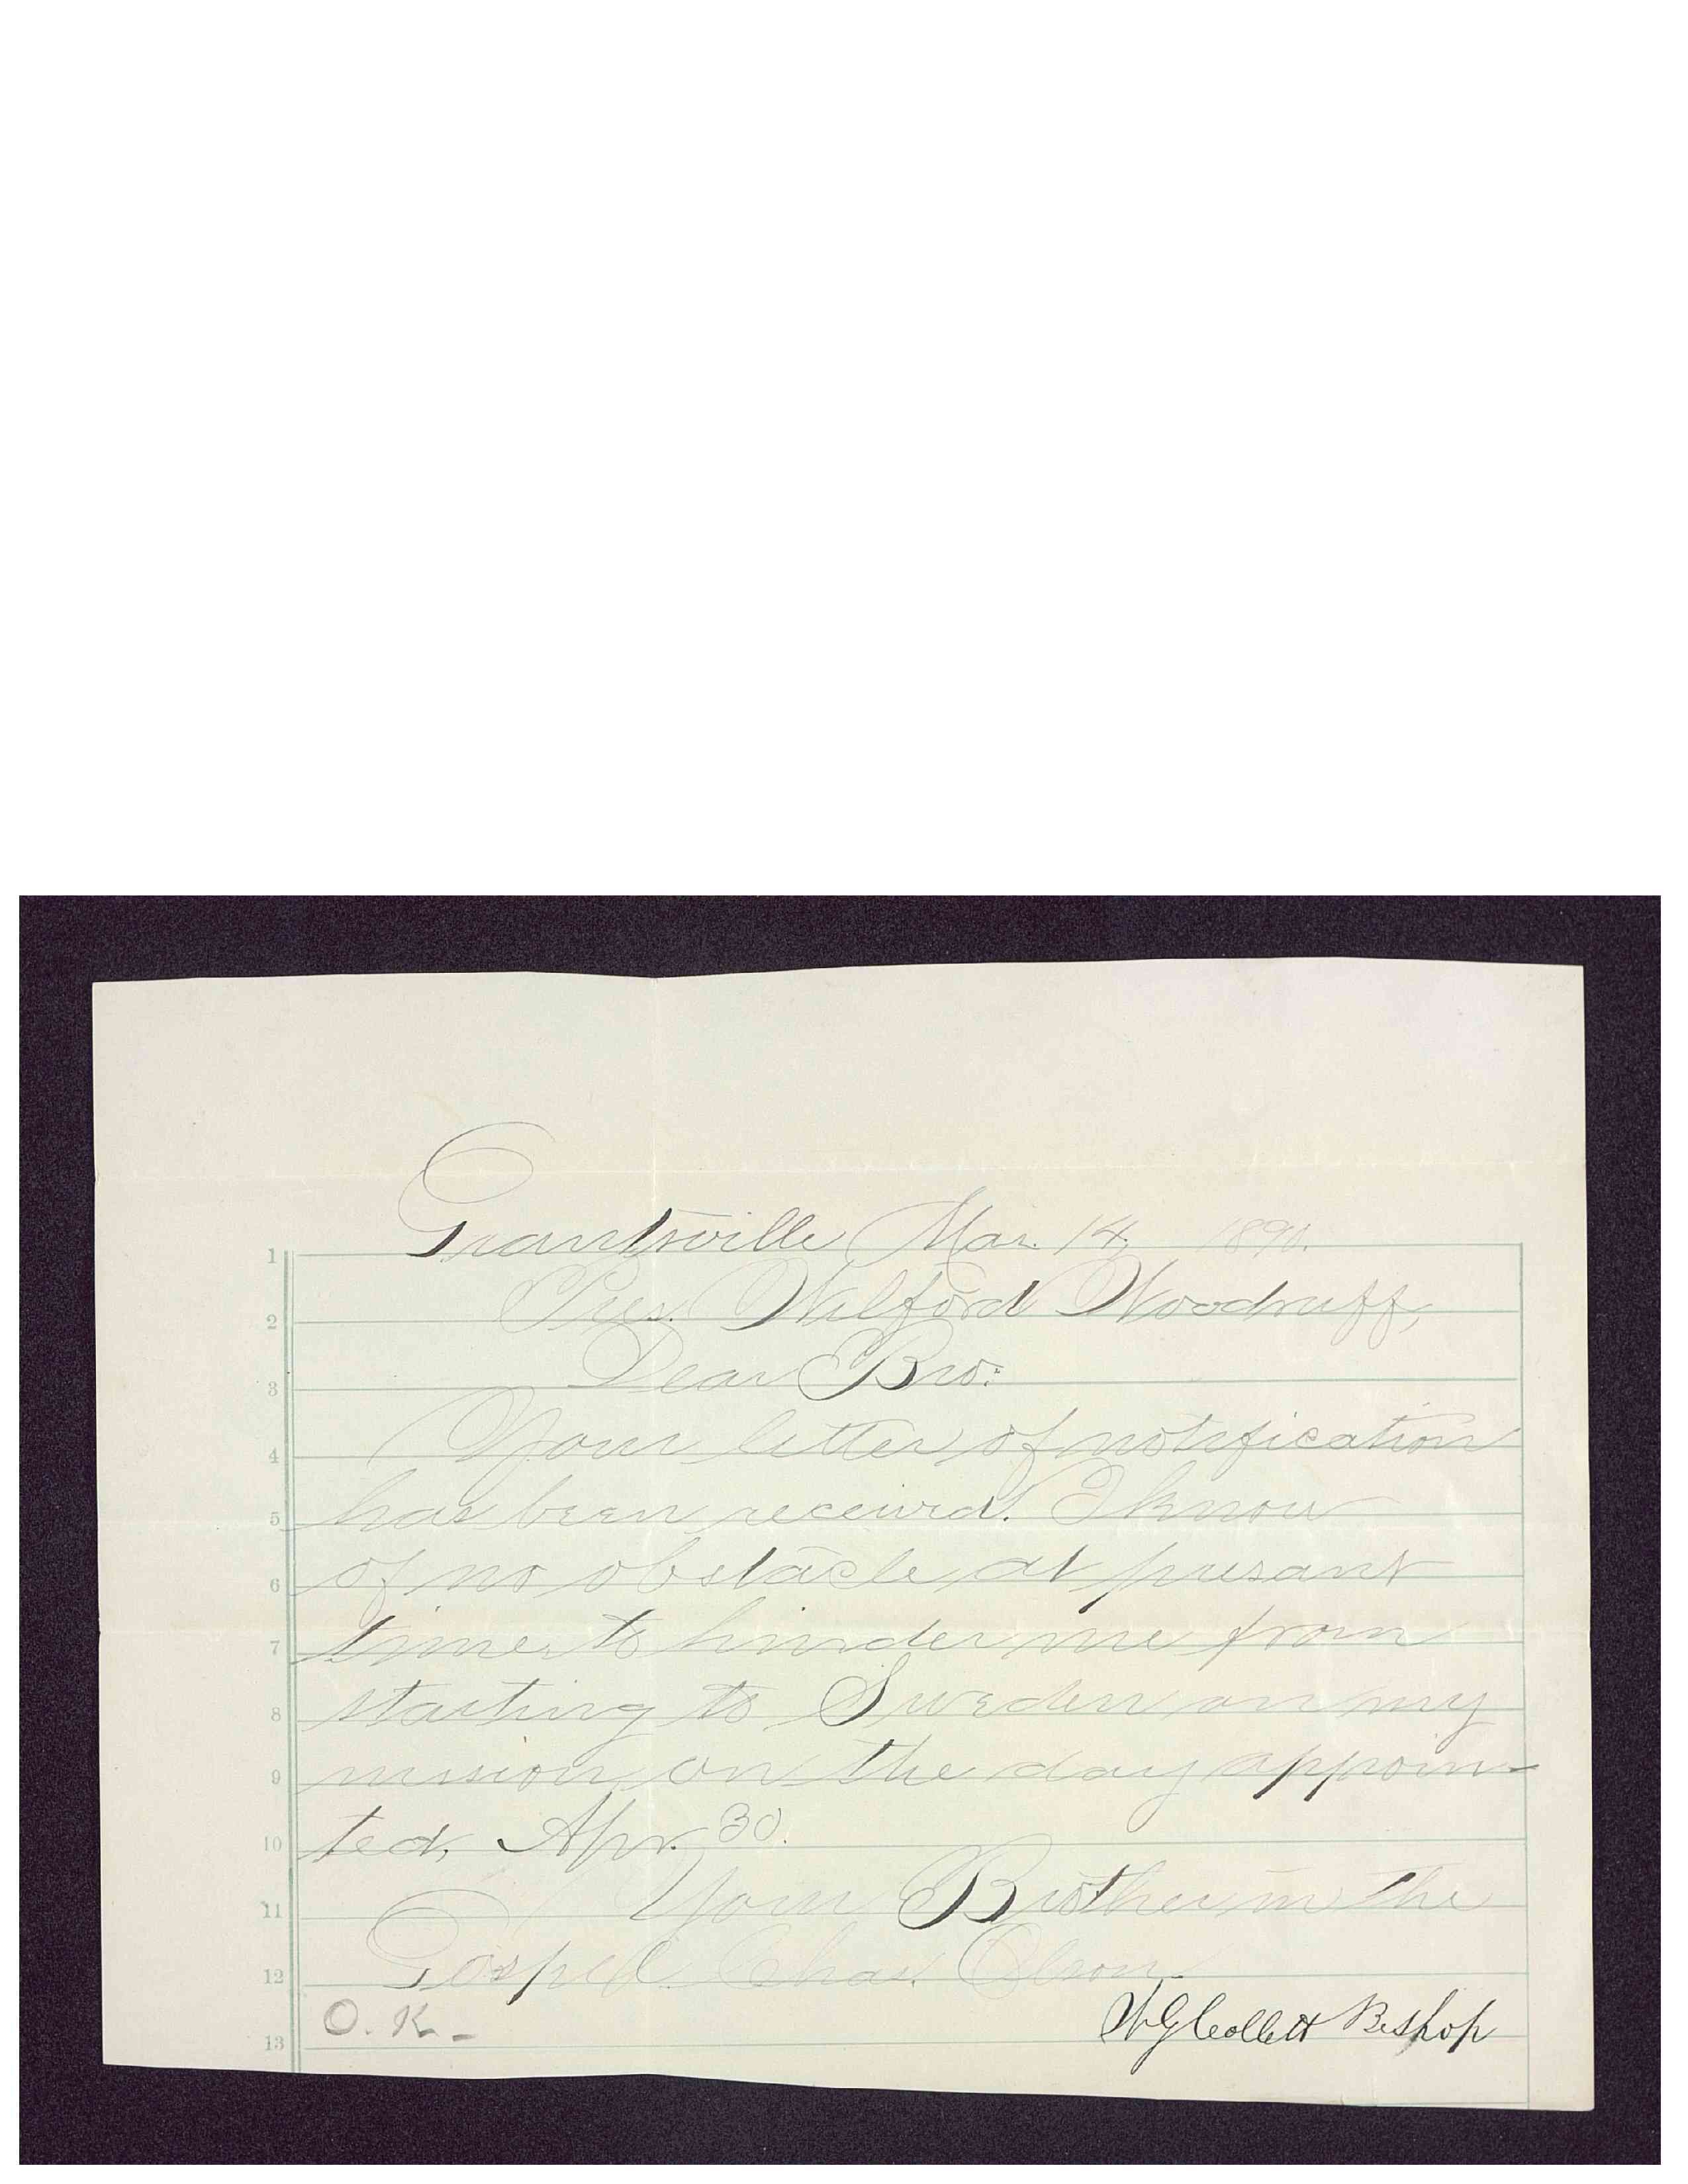 Grantsville Mar. 14, 1890.
1
Pres. Wilford Woodruff,
2
Dear Bro:
3
Your letter of notification
4
has been received. I know
5
of no obstacle at presant
6
time to hinder me from
7
starting to Sweden on my
8
mission on the day appoin-
9
ted, Apr. 30.
10
Your Brother in the
11
Gospel. Chas. Olson.
12
O. K. -
W G Collett Bishop
13